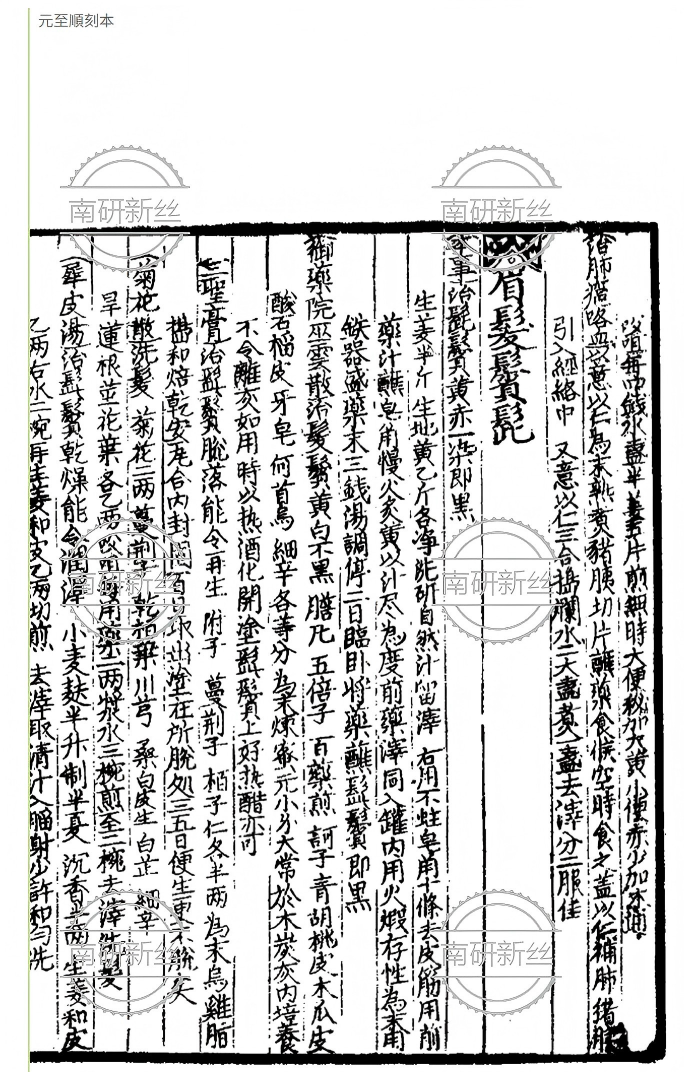 元至順刻本
㕮咀每四錢水盞半姜五片煎無時大便秘加大黃小便赤少加木通。
治肺損咯血意以仁為末熟煑豬胰切片蘸藥食候空時食之蓋以仁補肺豬胰
引入經絡中 又意以仁三合搗爛水二大盞煑一盞去滓分二服佳
眉髮鬢髭
治髭鬢黃赤一染即黑
生姜半斤生地黃乙斤各淨洗研自然汁留滓 右用不蛀皂角十條去皮筋用前
藥汁蘸皂角慢火炙黃以汁尽為度前藥滓同入罐內用火煅存性為末用
鉄器盛藥末三錢湯調停二日臨臥將藥蘸髭鬢即黑
御藥院巫雲散治髮鬢黃白不黑 膽凡 五倍子 百藥煎 訶子 青胡桃皮 木瓜皮
酸石榴皮 牙皂 何首烏 細辛各等分為末煉蜜元小分大常於木炭灰內培養
不令離灰如用時以热酒化開塗髭鬢上好热醋亦可
三聖膏治髭鬢脫落能令再生 附子 蔓荊子 柏子仁各半兩 為末烏雞脂
搗和焙乾安瓦合內封閉百日取出塗在所脫処三五日便生更不脫矣
菊花散洗髮 菊花二兩 蔓荊子 乾柏葉 川芎 桑白皮生 白芷 細辛
旱蓮根並花葉各乙兩㕮咀每用藥二兩漿水三椀煎至二椀去滓洗髮
犀皮湯治髭鬢乾燥能令潤澤 小麦麩半升 制半夏 沉香半兩 生姜和皮
乙兩右水二椀再生姜和皮乙兩切煎 去滓取清汁入腦射少許和勻洗
南研新丝
南研新丝
南研新丝
南研新丝
南研新丝
南研新丝